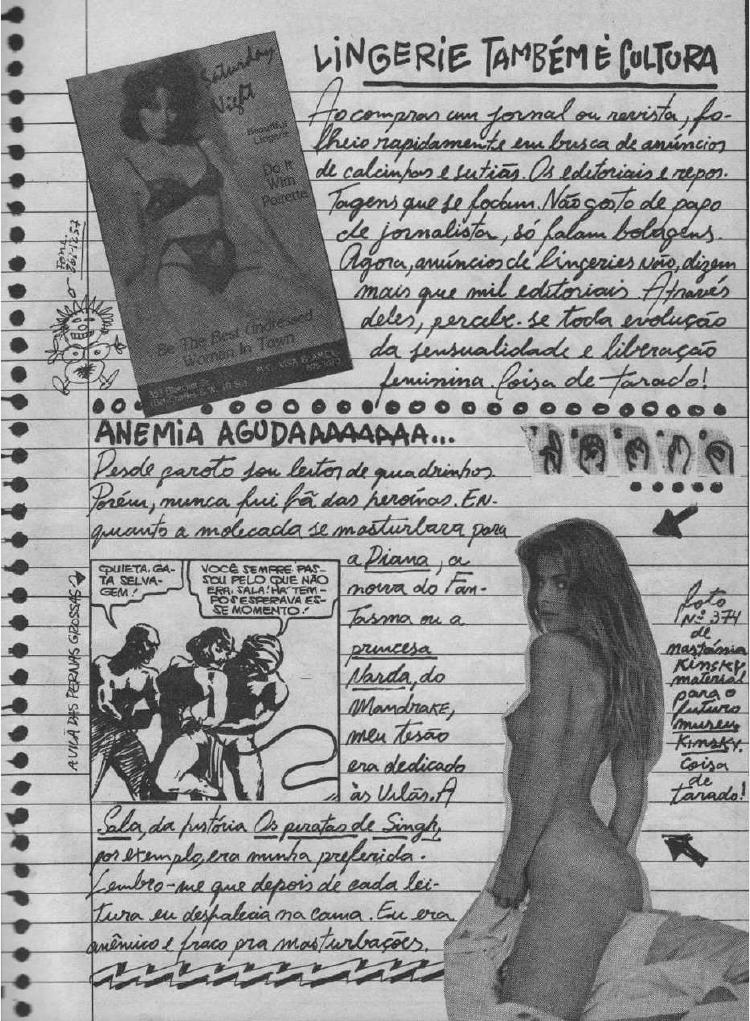 LINGERIE TAMBÉM É CULTURA
Ao comprar um jornal ou revista, fo-
lheio rapidamente em busca de anúncios
de calcinhas e sutiãs. Os editoriais e repor-
tagens que se fodam. Não gosto de papo
de jornalista, só falam bobagens.
Agora, anúncios de lingeries não, dizem
mais que mil editoriais. Através
deles, percebe-se toda evolução
da sensualidade e liberação
feminina. Coisa de tarado!
Saturday
Night
Beautiful
Lingerie
Do It
With
Poirette
Be The Best Undressed
Woman In Town
ANEMIA AGUDAAAAAAAA...
Desde garoto sou leitor de quadrinhos.
Porém, nunca fui fã das heroínas. En-
quanto a molecada se masturbava para
a Diana, a
noiva do Fan-
tasma ou a
princesa
Narda, do
Mandrake,
meu tesão
era dedicado
às vilãs. A
Sala, da história Os piratas de Singh,
por exemplo, era minha preferida.
Lembro-me que depois de cada lei-
tura eu desfalecia na cama. Eu era
anêmico e fraco pra masturbações.
QUIETA, GA-
TA SELVA-
GEM!
VOCÊ SEMPRE PAS-
SOU PELO QUE NÃO
ERA, SALA! HÁ TEM-
POS ESPERAVA ES-
SE MOMENTO!
A VILÃ DAS PERNAS GROSSAS
foto
Nº 374
de
nastássia
Kinsky
material
para o
futuro
museu
Kinsky.
Coisa
de
tarado!